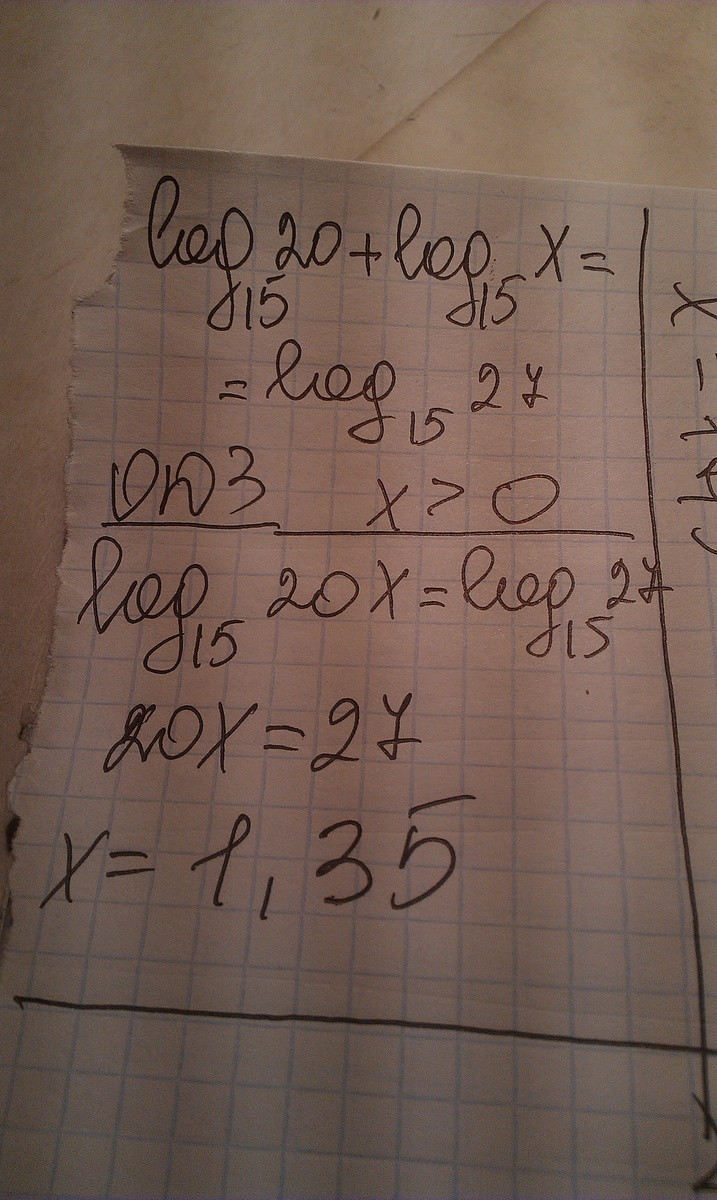 log₁₅ 20 + log₁₅ x =
= log₁₅ 27
ОДЗ x > 0
log₁₅ 20x = log₁₅ 27
20x = 27
x = 1,35